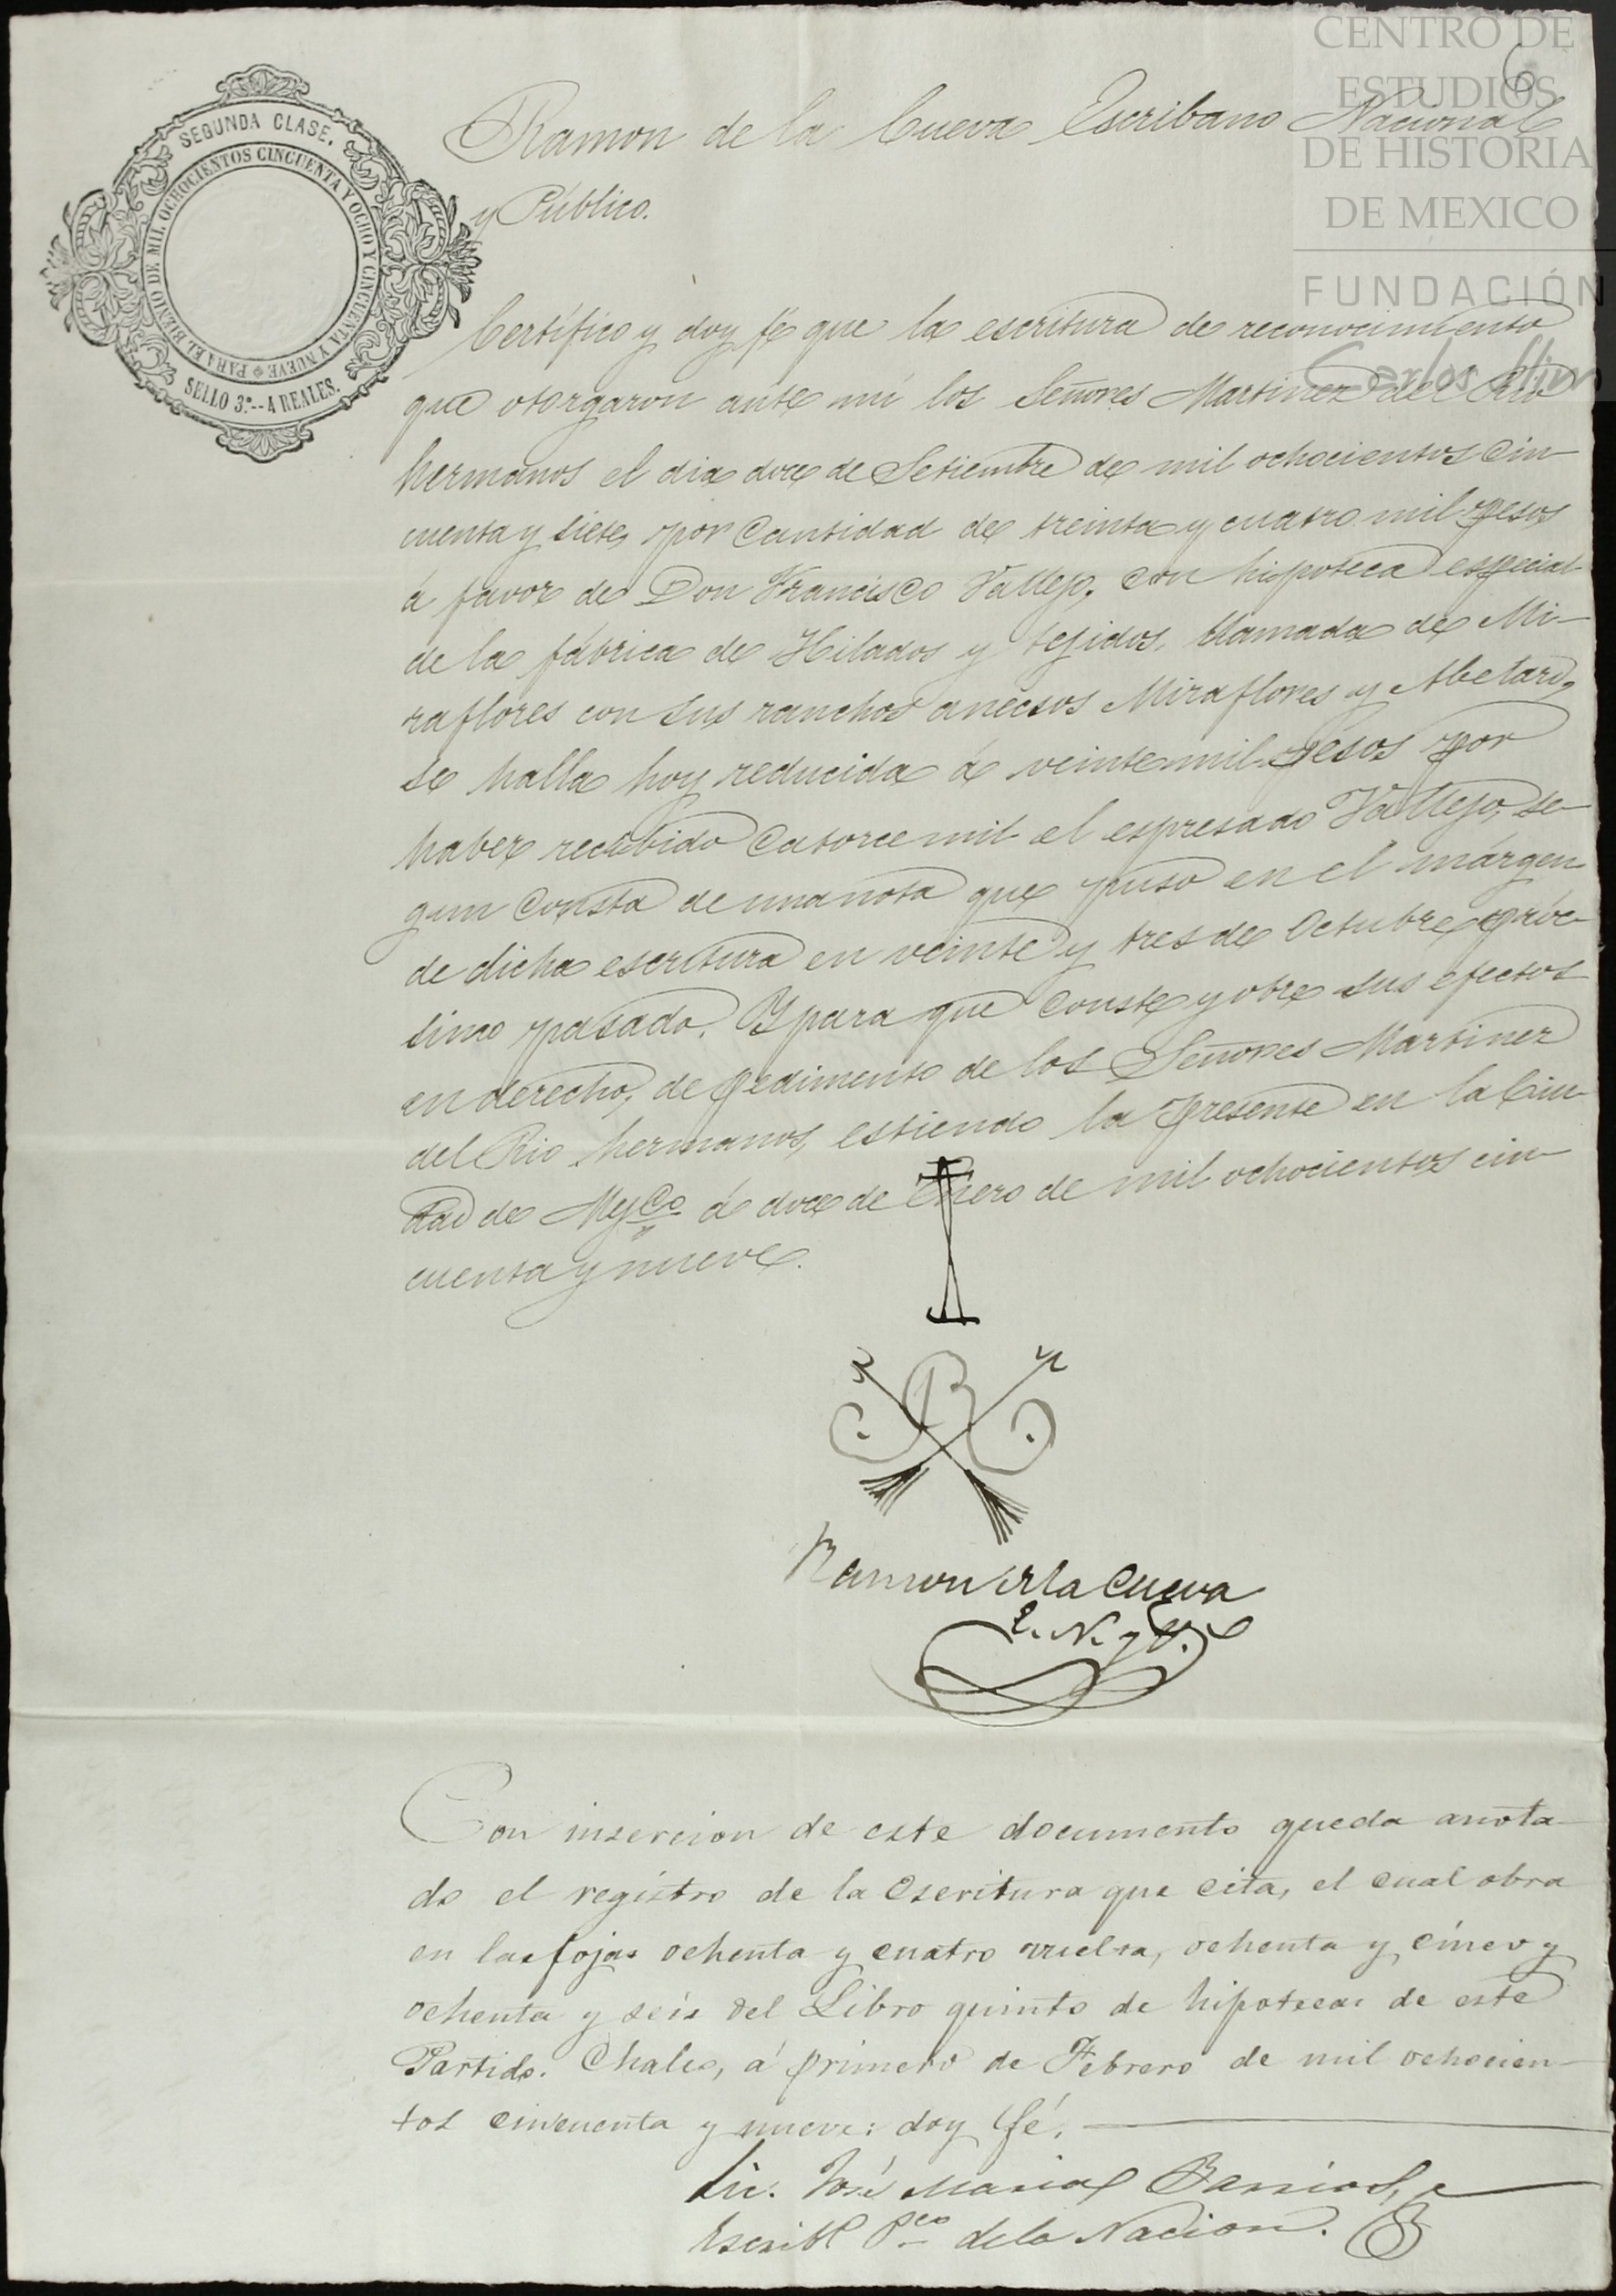 CENTRO DE
ESTUDIOS
DE HISTORIA
DE MEXICO
FUNDACIÓN
Carlos Slim
6
SEGUNDA CLASE.
PARA EL BIENIO DE MIL OCHOCIENTOS CINCUENTA Y OCHO Y CINCUENTA Y NUEVE
SELLO 3.º--4 REALES.
Ramon de la Cueva Escribano Nacional
y Público.
Certífico y doy fé que la escritura de reconocimiento
que otorgaron ante mi los Señores Martinez del Rio
hermanos el dia doce de Setiembre de mil ochocientos cin-
cuenta y siete, por cantidad de treinta y cuatro mil pesos
á favor de Don Francisco Vallejo, con hipoteca especial
de la fábrica de Hilados y tejidos, llamada de Mi-
raflores con sus ranchos anecsos Miraflores y Abelard,
se halla hoy reducida á veinte mil pesos por
haber recibido catorce mil el espresado Vallejo, se-
gun consta de una nota que puso en el márgen
de dicha escritura en veinte y tres de Octubre próc-
simo pasado. Y para que conste y obre sus efectos
en derecho, de pedimento de los Señores Martinez
del Rio hermanos, estiendo la presente en la Ciu-
dad de Myco á doce de Enero de mil ochocientos cin-
cuenta y nueve.
Ramon de la Cueva
E. N. y P.
Con insercion de este documento queda anota-
do el registro de la Escritura que cita, el cual obra
en las fojas ochenta y cuatro vuelta, ochenta y cinco y
ochenta y seis del Libro quinto de hipotecas de este
Partido. Chalco, á primero de Febrero de mil ochocien-
tos cincuenta y nueve: doy fé.
Lic. José Maria Barrios,
Escribº Pco de la Nacion.